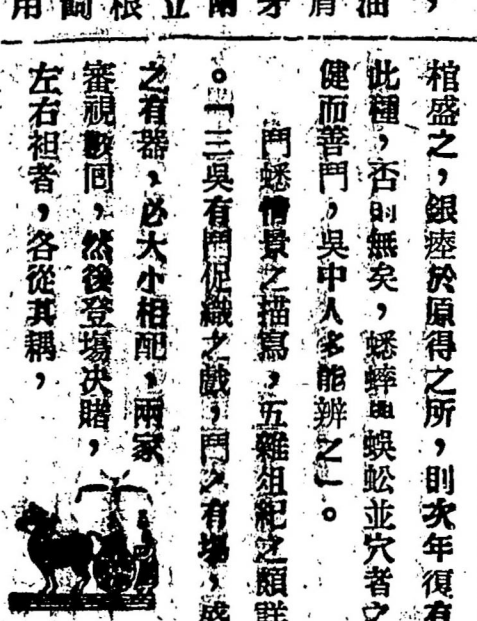 棺盛之，銀瘞於原得之所，則次年復有
此種，否則無矣，蟋蟀與蜈蚣並穴者之
健而善鬥，吳中人多能辨之」。
鬥蟋情景之描寫，五雜俎紀之頗詳
。「三吳有鬥促織之戲，鬥之有場，盛
之有器，必大小相配，兩家
審視數回，然後登塲决賭，
左右袒者，各從其耦，